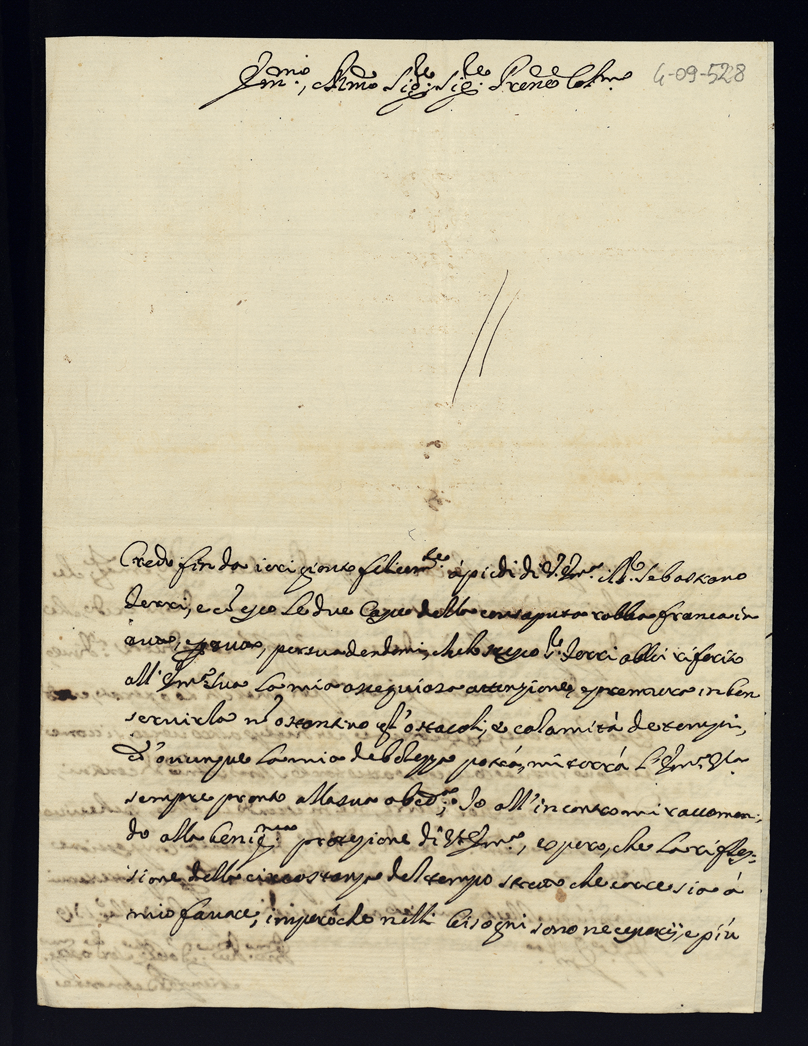 Em.mo, Rmo Sig.re Sig.re Prone Col.mo
4-09-528
Credo fin da ieri gionto felicem.te á piedi di V. Em.a il S.r Sebastiano
Ferri, e co esso le due Casse della consaputa robba franca in
persuadendomi, che lo stesso S.r Ferri abbi riferito
all'Em.za Sua la mia osseguiosa attenzione, e premura in ben
servirla nō ostantino gl'ostacoli, e calamità de tempi,
D'ovunque la mia debolezza potrà, mi terrá l'Em.za V.ra
sempre pronto alla sua obed.za; Io all'incontro mi raccoman-
do alla benig.ma protezione di V. Em.a, e spero, che la rifles-
sione della circostanza del tempo stretto che corre sia á
mio favore, imperóche nelli bisogni sono necessarij, e piú